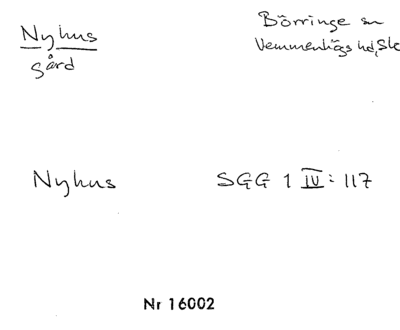 Nyhus
gård
Börringe sn
Vemmenhögs hd, Sk
Nyhus
SGG 1 IV: 117
Nr 16002